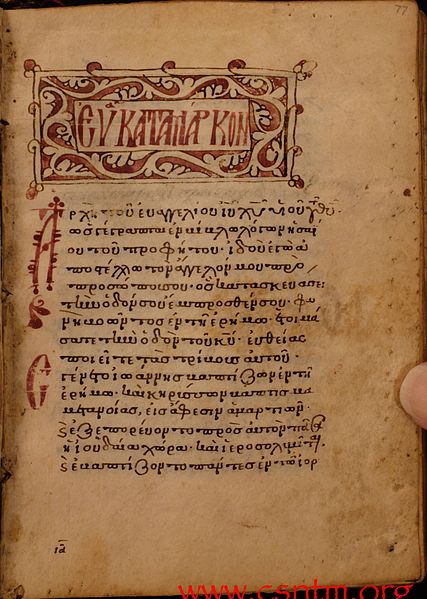 77
ΕΥΑ ΚΑΤΑ ΜΑΡΚΟΝ
Ἀρχὴ τοῦ εὐαγγελίου ἰυ χυ υἱοῦ θυ
ὡς γέγραπται ἐν
ου τοῦ προφήτου· ἰδοὺ ἐγὼ ἀ
ποστέλλω τὸν ἄγγελον μου πρὸ
προσώπου σου· ὃς κατασκευάσει
τὴν ὁδόν σου ἔμπροσθέν σου· φω
νὴ βοῶντος ἐν τῇ ἐρήμω· ἑτοιμά
σατε τὴν ὁδὸν κυ· εὐθείας
ποιεῖτε τὰς τρίβους αὐτοῦ·
Ἐγένετο ἰωάννης βαπτίζων ἐν τῇ
ἐρήμω· καὶ κηρύσσων βάπτισμα
μετανοίας, εἰς ἄφεσιν ἁμαρτιῶν·
καὶ ἐξεπορεύοντο πρὸς αὐτὸν πᾶσα
ἡ ἰουδαία χώρα· καὶ ἱεροσολυμῖται
καὶ ἐβαπτίζοντο πάντες ἐν τῶ ἰορ
ια
www.csntm.org